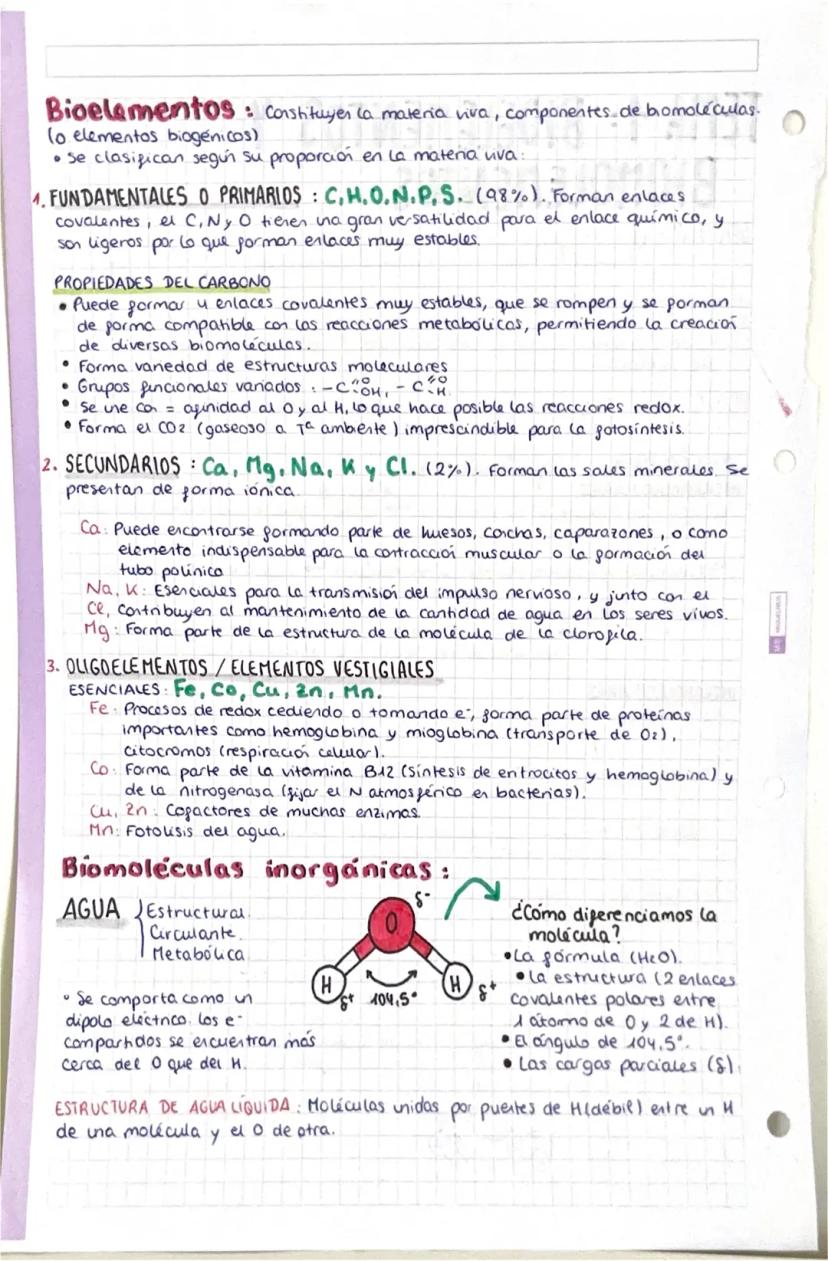 Bioelementos : Constituyen la materia viva, componentes de biomoléculas.
(o elementos biogénicos)
• Se clasifican según su proporción en la materia viva:
1. FUNDAMENTALES O PRIMARIOS : C, H, O, N, P, S. (98%). Forman enlaces
covalentes, el C, N y O tienen una gran versatilidad para el enlace químico, y
son ligeros por lo que forman enlaces muy estables.
PROPIEDADES DEL CARBONO
• Puede formar 4 enlaces covalentes muy estables, que se rompen y se forman
de forma compatible con las reacciones metabólicas, permitiendo la creación
de diversas biomoléculas.
• Forma variedad de estructuras moleculares
• Grupos funcionales variados : -C=O OH, -C=O H
• Se une con = afinidad al O y al H, lo que hace posible las reacciones redox.
• Forma el CO2 (gaseoso a Tª ambiente) imprescindible para la fotosíntesis.
2. SECUNDARIOS : Ca, Mg, Na, K y Cl. (2%). Forman las sales minerales. Se
presentan de forma iónica.
Ca: Puede encontrarse formando parte de huesos, conchas, caparazones, o como
elemento indispensable para la contracción muscular o la formación del
tubo polínico
Na, K: Esenciales para la transmisión del impulso nervioso, y junto con el
Cl, contribuyen al mantenimiento de la cantidad de agua en los seres vivos.
Mg: Forma parte de la estructura de la molécula de la clorofila.
3. OLIGOELEMENTOS / ELEMENTOS VESTIGIALES
ESENCIALES: Fe, Co, Cu, Zn, Mn.
Fe: Procesos de redox cediendo o tomando e-, forma parte de proteínas
importantes como hemoglobina y mioglobina (transporte de O2),
citocromos (respiración celular).
Co: Forma parte de la vitamina B12 (síntesis de entrocitos y hemoglobina) y
de la nitrogenasa (fijar el N atmosférico en bacterias).
Cu, Zn: Cofactores de muchas enzimas.
Mn: Fotolisis del agua.
Biomoléculas inorgánicas :
AGUA { Estructural.
Circulante.
Metabólica
• Se comporta como un
dipolo eléctrico. los e-
compartidos se encuentran más
cerca del O que del H.
δ-
O
H
H
δ+
104,5°
δ+
¿Cómo diferenciamos la
molécula?
• La fórmula (H2O).
• La estructura (2 enlaces
covalentes polares entre
1 átomo de O y 2 de H).
• El ángulo de 104,5°.
• Las cargas parciales (δ).
ESTRUCTURA DE AGUA LÍQUIDA : Moléculas unidas por puentes de H(débil) entre un H
de una molécula y el O de otra.